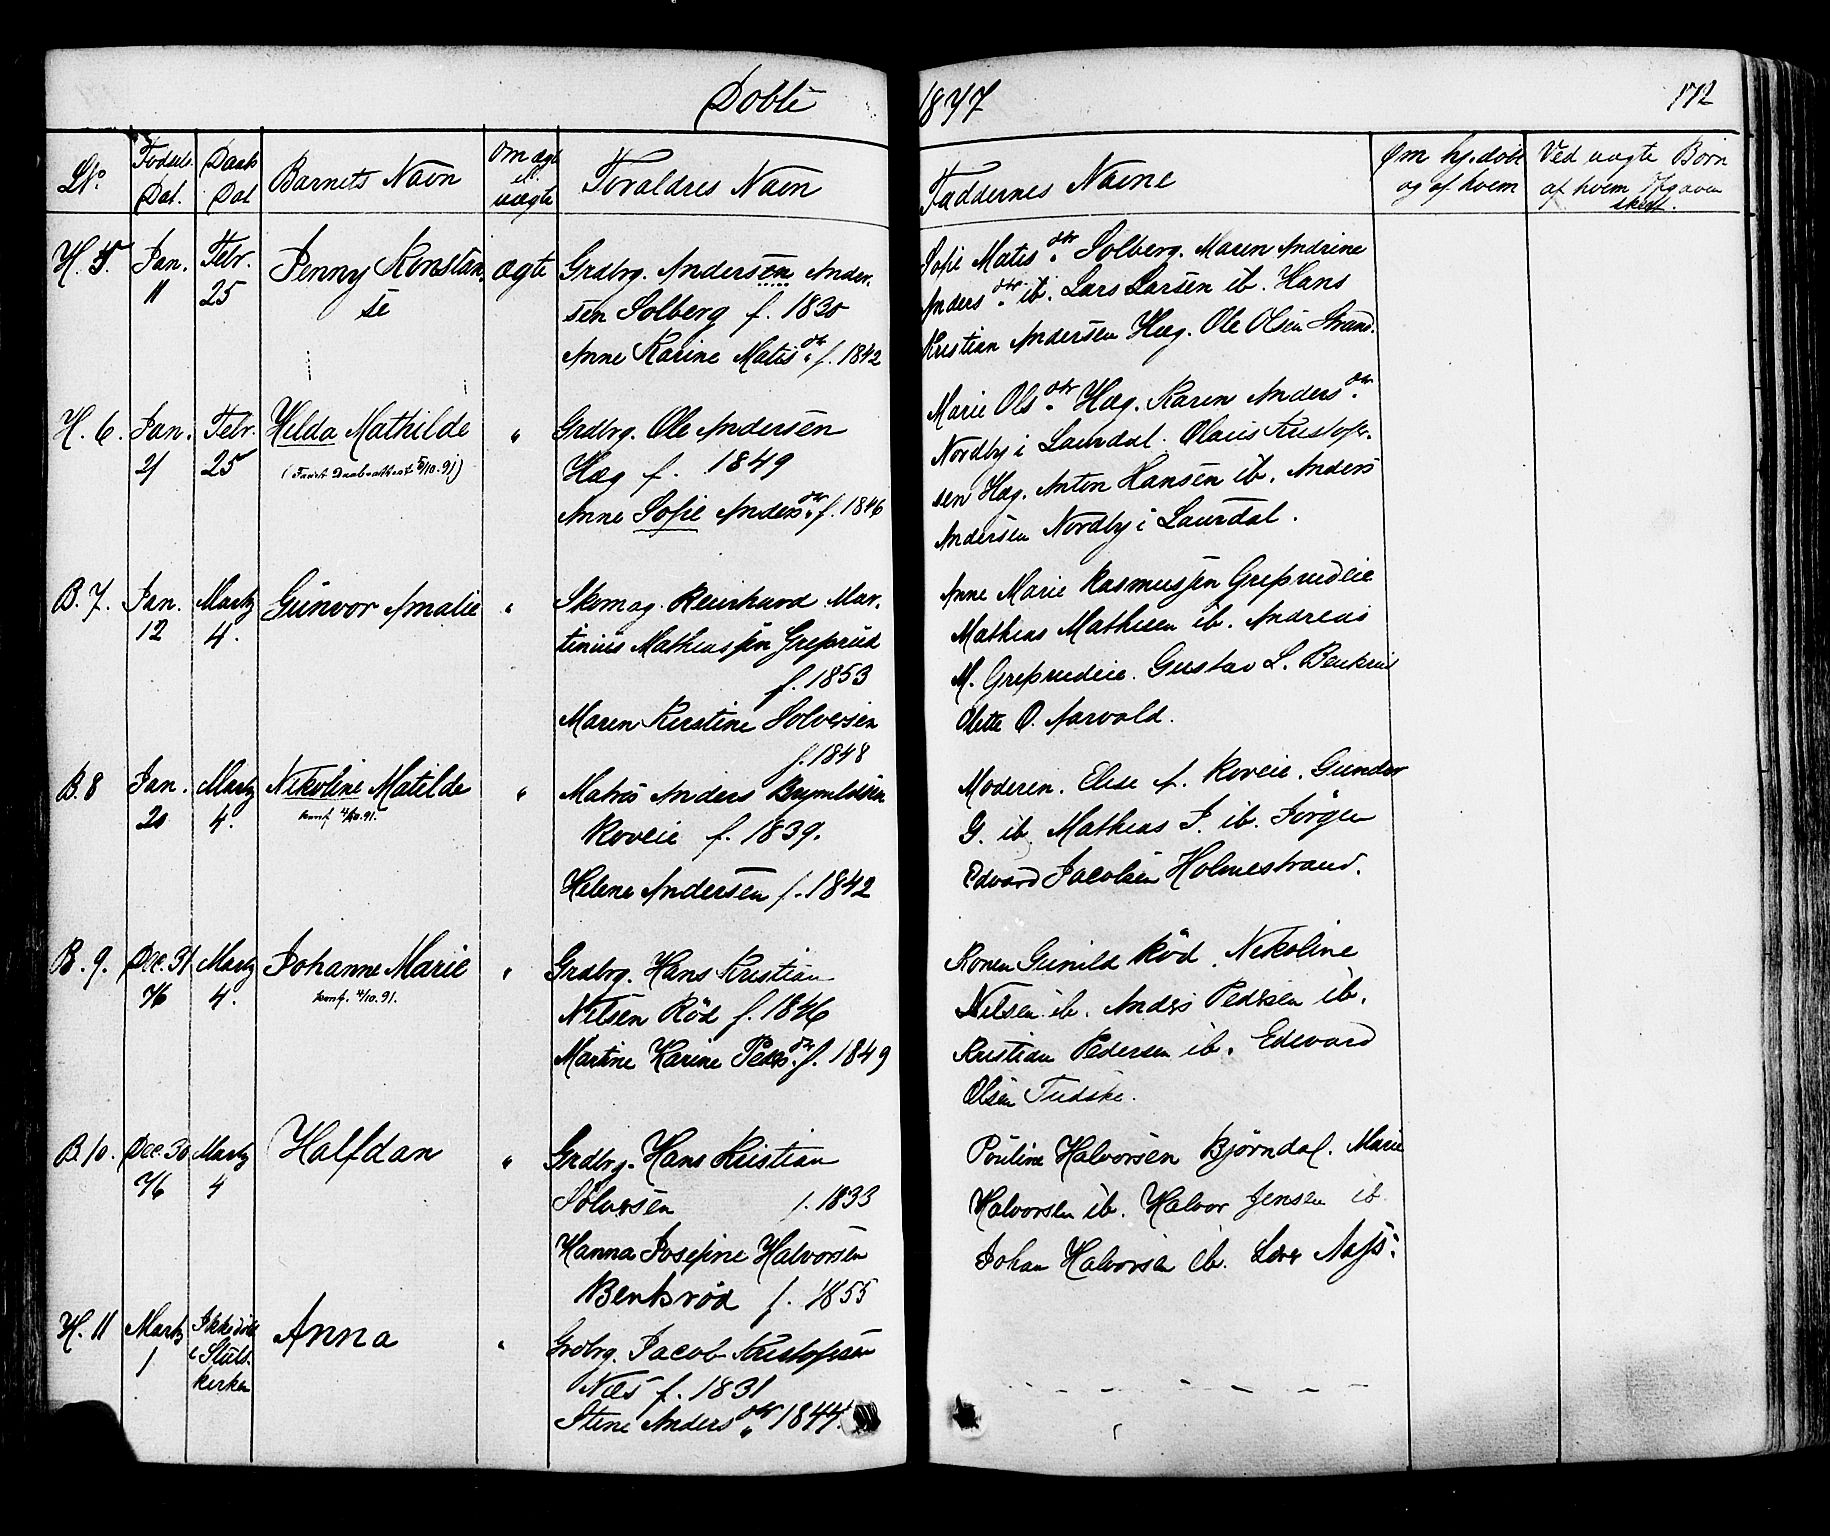 Døbte 1877 172
No. Fødsels Dat. Daab Dat Barnets Navn Om ægte el. uægte Foraldres Navn Faddernes Navne Om hj.døbt og af hvem Ved uægte Børn af hvem Opgaven skedt.
H. 5. Jan. 11 Febr. 25 Jenny Konstan-
se
ægte
Grdbrg. Andersen Ander-
sen Solberg f. 1830
Anne Karine Matisdtr. f. 1842
Sofie Matisdtr. Solberg. Maren Andrine
Andersdtr. ib. Lars Larsen ib. Hans
Kristian Andersen Hæg. Ole Olsen Strand.
H. 6. Jan. 21 Febr. 25 Helda Mathilde
( Daabsattest 5/10.91)
"
Grdbrg. Ole Andersen
Hæg f. 1849
Anne Sofie Andersdtr. f. 1846
Marie Olsdtr. Hæg. Karen Andersdtr.
Nordby i Laurdal. Olaus Kristofer-
sen Hæg. Anton Hansen ib. Anders
Andersen Nordby i Laurdal.
B. 7. Jan. 12 Marts 4. Gunvor Amalie "
Skomag. Reinhard Mar-
tinius Mathiassen Greprud
f. 1853
Maren Kirstine Solversen
f. 1848
Anne Marie Rasmussen Greprudeie
Mathias Mathisen ib. Andreas
M. Greprudeie. Gustav L.
Olette O. Aarvold.
B. 8 Jan. 20 Marts 4. Nikoline Matilde
konf. 4/10.91.
"
Matros Anders
Roveie f. 1839.
Helene Andersen f. 1842
Moderen. Elise f. Roveie. Gunder
G. ib. Mathias J. ib. Jørgen
Edvard Jacobsen Holmestrand.
B. 9. Dec. 31 76 Marts 4. Johanne Marie
konf. 4/10.91.
"
Grdbrg. Hans Kristian
Nilsen Rød f. 1846
Martine Karine Pedersdtr. f. 1849
Konen Gunild Rød. Nikoline
Nilsen ib. Anders Pedersen ib.
Kristian Pedersen ib. Edevard
Olsen Tudske.
B. 10. Dec. 30 76 Marts 4 Halfdan "
Grdbrg. Hans Kristian
Solversen f. 1833
Hanna Josefine Halvorsen
Bentsrød f. 1855
Pouline Halvorsen Bjørndal. Marie
Halvorsen ib. Halvor Jensen ib.
Johan Halvorsen ib.
H. 11 Marts 1 Ikke døbt i Stats-
kirken
Anna "
Grdbrg. Jacob Kristofersen
Næs f. 1831
Stine Andersdtr. 1844.